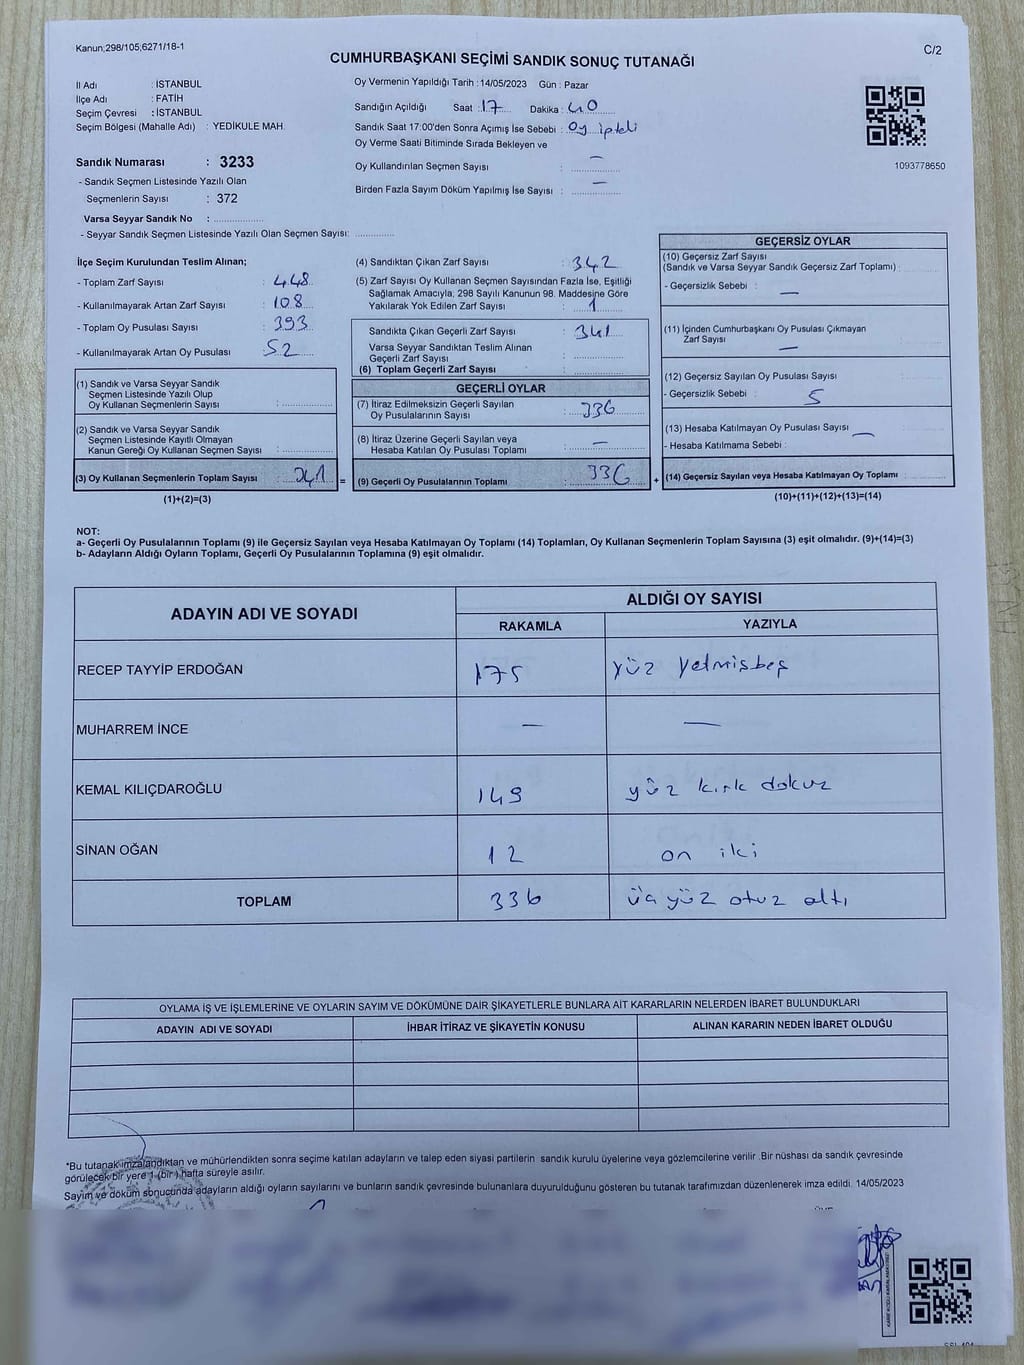 Kanun;298/105;6271/18-1
C/2
CUMHURBAŞKANI SEÇİMİ SANDIK SONUÇ TUTANAĞI
İl Adı : İSTANBUL
İlçe Adı : FATİH
Seçim Çevresi : İSTANBUL
Seçim Bölgesi (Mahalle Adı) : YEDİKULE MAH.
Sandık Numarası : 3233
- Sandık Seçmen Listesinde Yazılı Olan
Seçmenlerin Sayısı : 372
Varsa Seyyar Sandık No :
- Seyyar Sandık Seçmen Listesinde Yazılı Olan Seçmen Sayısı:
Oy Vermenin Yapıldığı Tarih : 14/05/2023 Gün : Pazar
Sandığın Açıldığı Saat : 17 Dakika : 40
Sandık Saat 17:00'den Sonra Açımış İse Sebebi : Oy ipteli
Oy Verme Saati Bitiminde Sırada Bekleyen ve
Oy Kullandırılan Seçmen Sayısı : —
Birden Fazla Sayım Döküm Yapılmış İse Sayısı : —
1093778650
İlçe Seçim Kurulundan Teslim Alınan;
- Toplam Zarf Sayısı : 448
- Kullanılmayarak Artan Zarf Sayısı : 108
- Toplam Oy Pusulası Sayısı : 393
- Kullanılmayarak Artan Oy Pusulası : 52
(1) Sandık ve Varsa Seyyar Sandık
Seçmen Listesinde Yazılı Olup
Oy Kullanan Seçmenlerin Sayısı :
(2) Sandık ve Varsa Seyyar Sandık
Seçmen Listesinde Kayıtlı Olmayan
Kanun Gereği Oy Kullanan Seçmen Sayısı :
(3) Oy Kullanan Seçmenlerin Toplam Sayısı : 341 =
(1)+(2)=(3)
(4) Sandıktan Çıkan Zarf Sayısı : 342
(5) Zarf Sayısı Oy Kullanan Seçmen Sayısından Fazla İse, Eşitliği
Sağlamak Amacıyla, 298 Sayılı Kanunun 98. Maddesine Göre
Yakılarak Yok Edilen Zarf Sayısı : 1
Sandıkta Çıkan Geçerli Zarf Sayısı : 341
Varsa Seyyar Sandıktan Teslim Alınan
Geçerli Zarf Sayısı :
(6) Toplam Geçerli Zarf Sayısı :
GEÇERLİ OYLAR
(7) İtiraz Edilmeksizin Geçerli Sayılan
Oy Pusulalarının Sayısı : 336
(8) İtiraz Üzerine Geçerli Sayılan veya
Hesaba Katılan Oy Pusulası Toplamı : —
(9) Geçerli Oy Pusulalarının Toplamı : 336 +
GEÇERSİZ OYLAR
(10) Geçersiz Zarf Sayısı
(Sandık ve Varsa Seyyar Sandık Geçersiz Zarf Toplamı) :
- Geçersizlik Sebebi : —
(11) İçinden Cumhurbaşkanı Oy Pusulası Çıkmayan
Zarf Sayısı : —
(12) Geçersiz Sayılan Oy Pusulası Sayısı :
- Geçersizlik Sebebi : 5
(13) Hesaba Katılmayan Oy Pusulası Sayısı : —
- Hesaba Katılmama Sebebi :
(14) Geçersiz Sayılan veya Hesaba Katılmayan Oy Toplamı :
(10)+(11)+(12)+(13)=(14)
NOT:
a- Geçerli Oy Pusulalarının Toplamı (9) ile Geçersiz Sayılan veya Hesaba Katılmayan Oy Toplamı (14) Toplamları, Oy Kullanan Seçmenlerin Toplam Sayısına (3) eşit olmalıdır. (9)+(14)=(3)
b- Adayların Aldığı Oyların Toplamı, Geçerli Oy Pusulalarının Toplamına (9) eşit olmalıdır.
ADAYIN ADI VE SOYADI
ALDIĞI OY SAYISI
RAKAMLA YAZIYLA
RECEP TAYYİP ERDOĞAN 175 yüz yetmişbeş
MUHARREM İNCE — —
KEMAL KILIÇDAROĞLU 149 yüz kırk dokuz
SİNAN OĞAN 12 on iki
TOPLAM 336 üç yüz otuz altı
OYLAMA İŞ VE İŞLEMLERİNE VE OYLARIN SAYIM VE DÖKÜMÜNE DAİR ŞİKAYETLERLE BUNLARA AİT KARARLARIN NELERDEN İBARET BULUNDUKLARI
ADAYIN ADI VE SOYADI İHBAR İTİRAZ VE ŞİKAYETİN KONUSU ALINAN KARARIN NEDEN İBARET OLDUĞU
*Bu tutanak imzalandıktan ve mühürlendikten sonra seçime katılan adayların ve talep eden siyasi partilerin sandık kurulu üyelerine veya gözlemcilerine verilir .Bir nüshası da sandık çevresinde
görülecek bir yere 1 (bir ) hafta süreyle asılır.
Sayım ve döküm sonucunda adayların aldığı oyların sayılarını ve bunların sandık çevresinde bulunanlara duyurulduğunu gösteren bu tutanak tarafımızdan düzenlenerek imza edildi. 14/05/2023